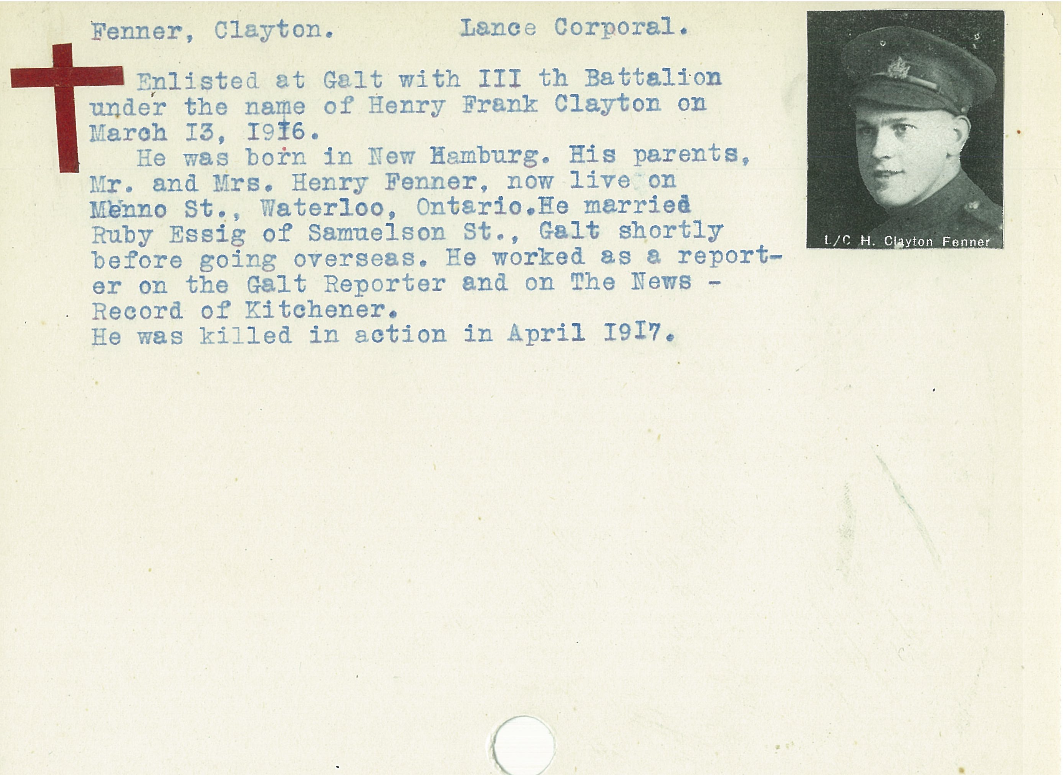 Fenner, Clayton. Lance Corporal.
Enlisted at Galt with III th Battalion
under the name of Henry Frank Clayton on
March I3, I9I6.
He was born in New Hamburg. His parents,
Mr. and Mrs. Henry Fenner, now live on
Menno St., Waterloo, Ontario.He married
Ruby Essig of Samuelson St., Galt shortly
before going overseas. He worked as a report-
er on the Galt Reporter and on The News -
Record of Kitchener.
He was killed in action in April I9I7.
L/C H. Clayton Fenner